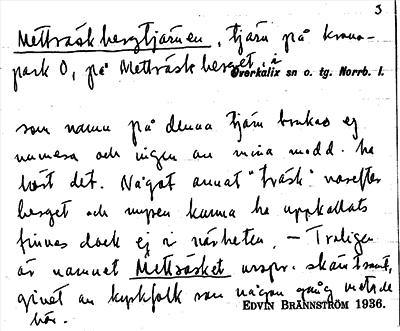 3
Metträskbergtjärnen, tjärn på krono-
park O, på Metträskberget, i
Överkalix sn o. tg. Norrb. l.
som namn på denna tjärn brukas ej
numera och ingen av mina medd. ha
hört det. Något annat "träsk" varefter
berget och myren kunna ha uppkallats
finnes dock ej i närheten. – Troligen
är namnet Metträsket urspr. skämtsamt,
givet av kyrkfolk som någon gång metade
här.
EDVIN BRÄNNSTRÖM 1936.